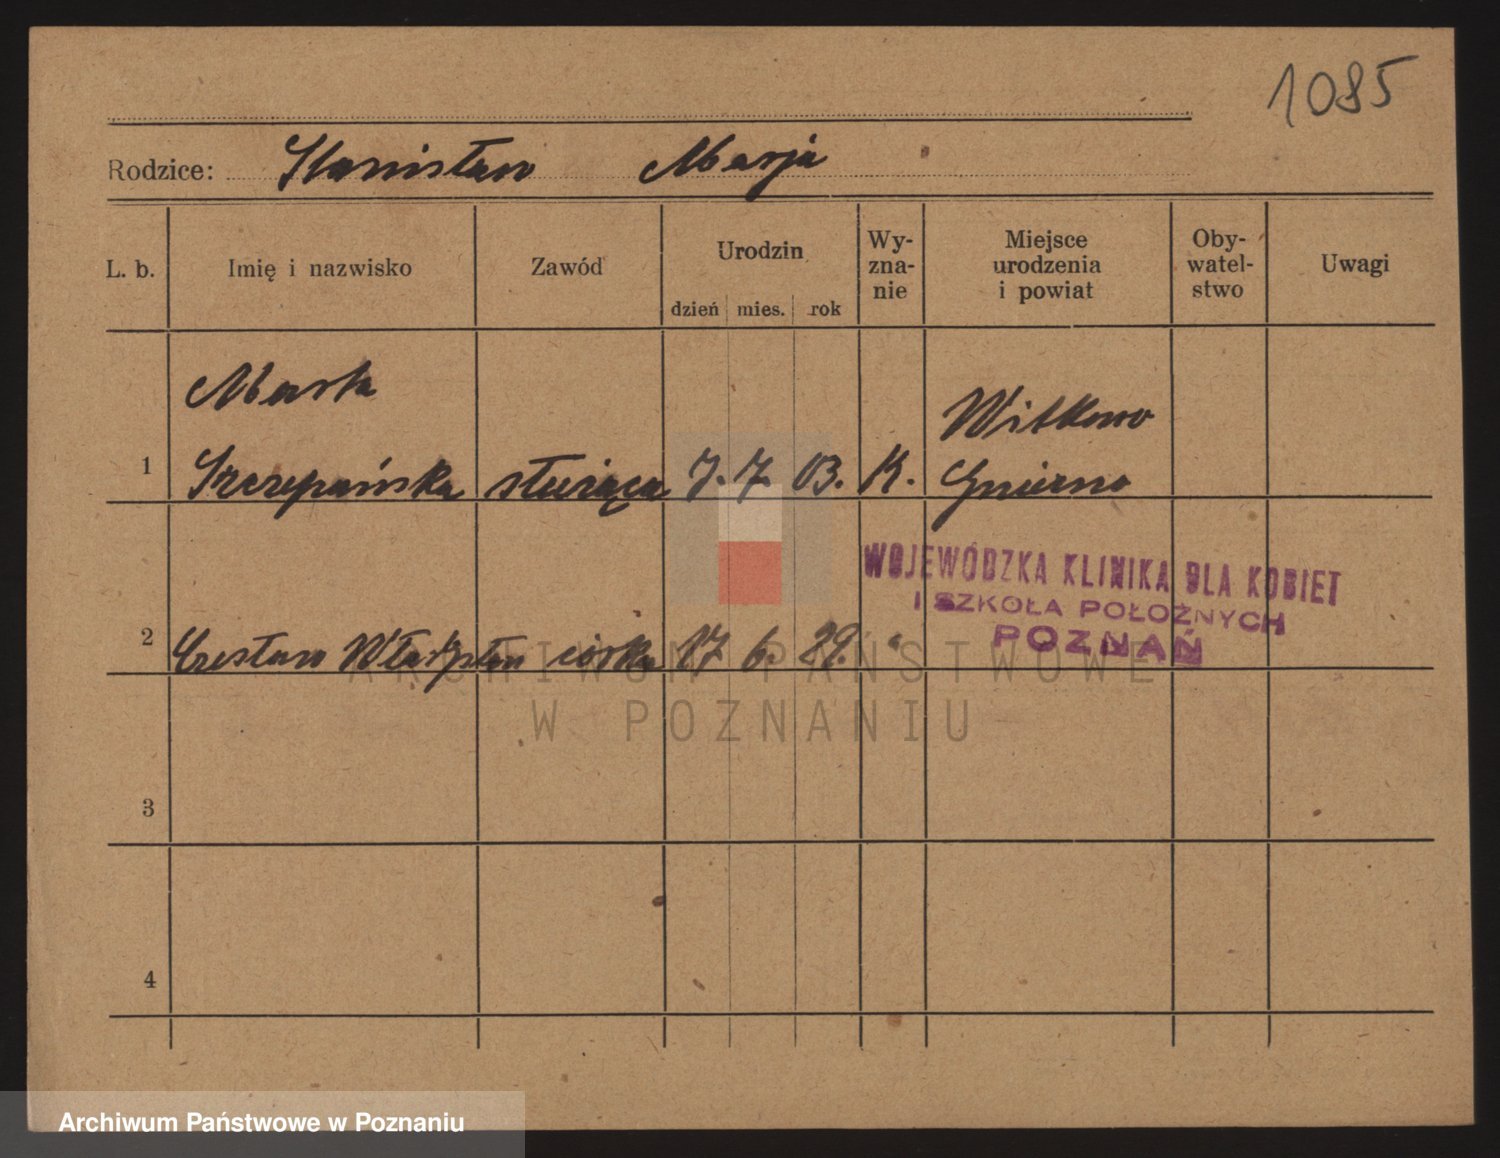 1085
Rodzice: Stanisław Marja
L. b. Imię i nazwisko Zawód Urodzin dzień mies. rok Wy-zna-nie Miejsce urodzenia i powiat Oby-watel-stwo Uwagi
Marta Witkowo
1 Szczepańska służąca 7. 7. 03. K. Gniezno
WOJEWÓDZKA KLINIKA DLA KOBIET
I SZKOŁA POŁOŻNYCH
POZNAŃ
2 Czesław córka 17 6. 29. "
ARCHIWUM PAŃSTWOWE
W POZNANIU
3
4
Archiwum Państwowe w Poznaniu